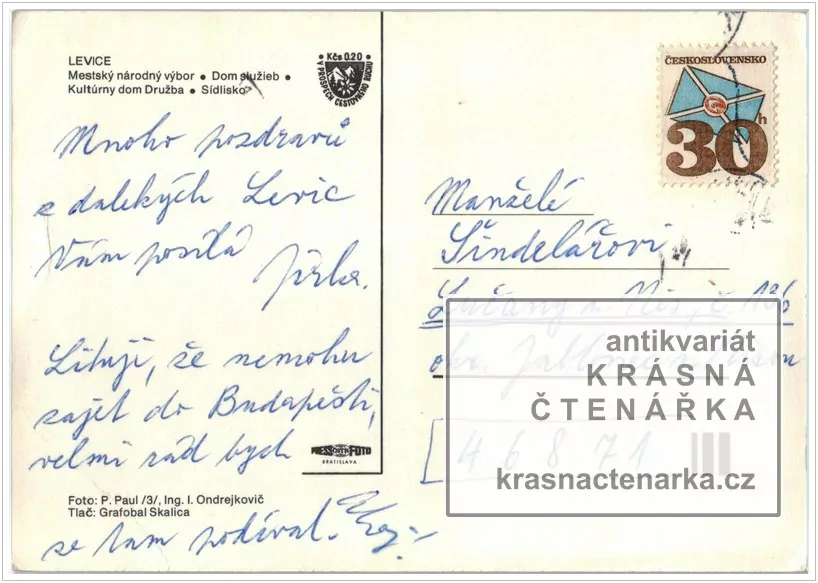 LEVICE
Mestský národný výbor ● Dom služieb ●
Kultúrny dom Družba ● Sídlisko
Kčs 0.20
V PROSPECH CESTOVNÉHO RUCHU
ČESKOSLOVENSKO
30h
Mnoho pozdravů
z dalekých Levic
Vám posílá
Jirka.
Lituji, že nemohu
zajet do Budapešti,
velmi rád bych
se tam podíval.
PRESSFOTO
BRATISLAVA
Foto: P. Paul /3/, Ing. I. Ondrejkovič
Tlač: Grafobal Skalica
Manželé
Šindelářovi
Lučany n. Nis, č. 136
okr. Jablonec n. Nisou
46871
antikvariát
KRÁSNÁ
ČTENÁŘKA
krasnactenarka.cz